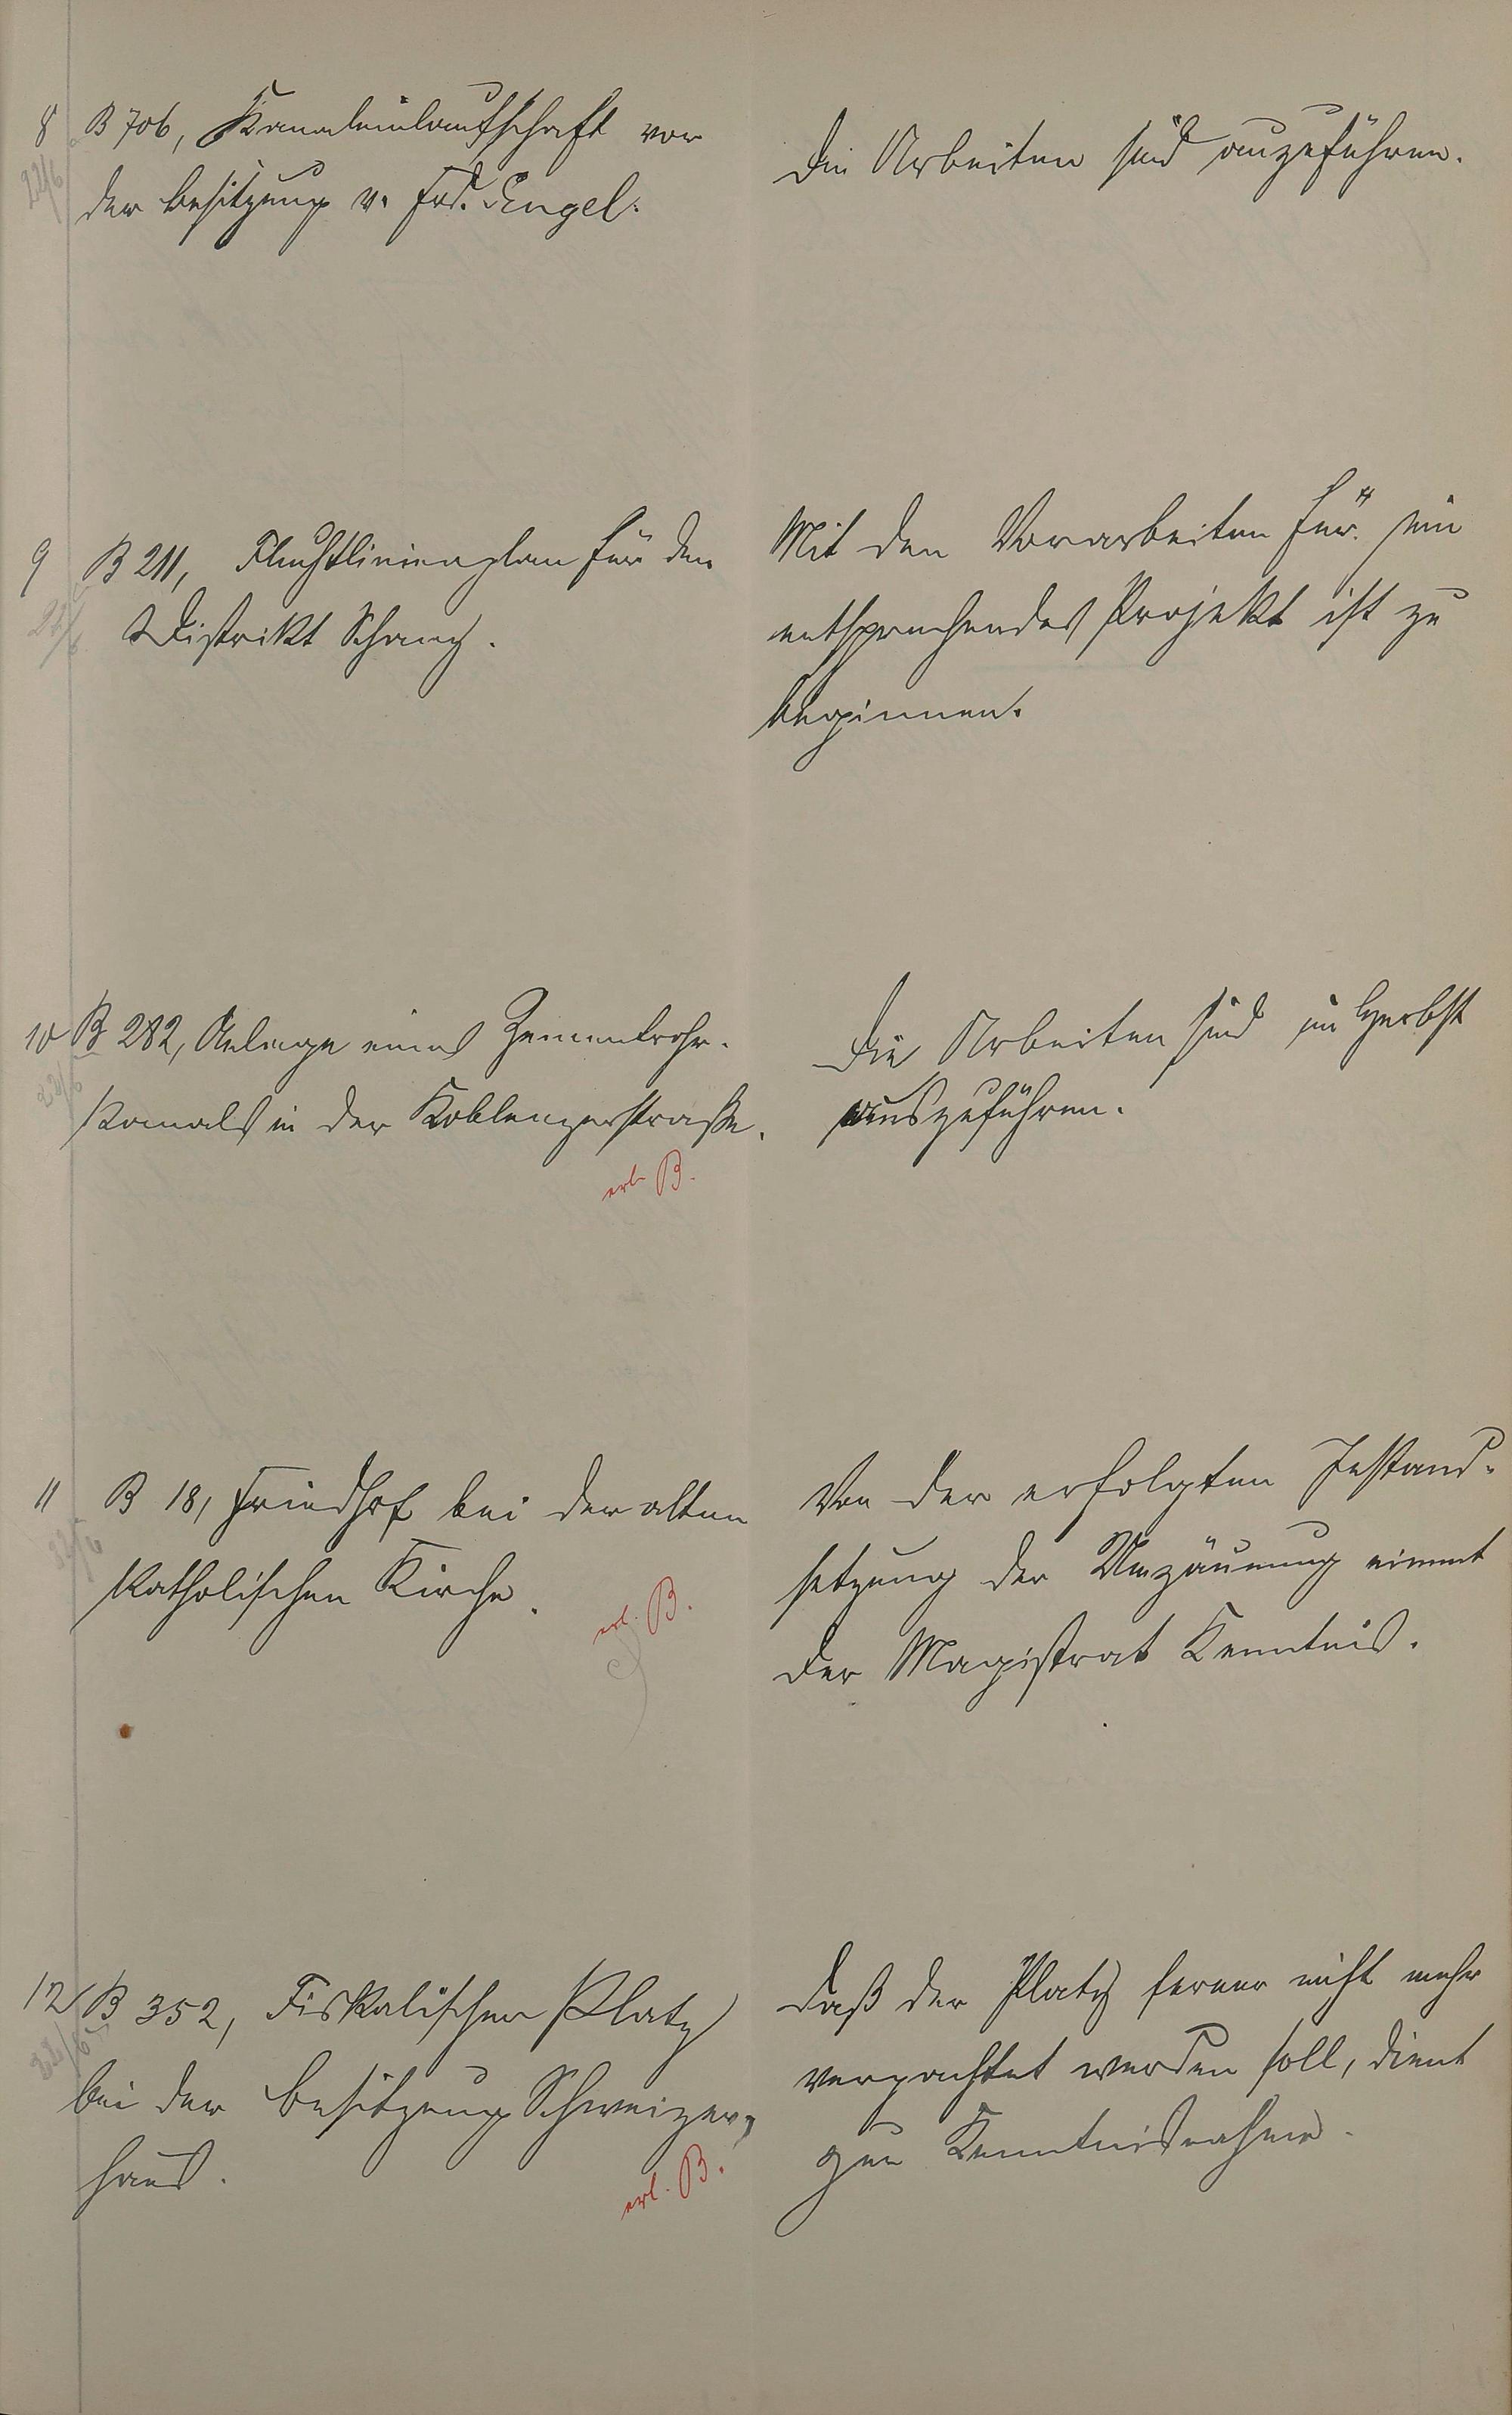 8 B 706, Kanaleinlaufschaft vor
22/6
der Besitzung v. Frd. Engel.
Die Arbeiten sind auszuführen.
9 B 211, Fluchtlinienplan für den
22/6
Distrikt Schanz.
Mit den Vorarbeiten für ein
entsprechendes Projekt ist zu
beginnen.
10 B 282, Anlage eines Zementrohr-
22/6
kanals in der Koblenzerstraße.
erl. B.
Die Arbeiten sind im Herbst
auszuführen.
11 B 18, Friedhof bei der alten
22/6
katholischen Kirche.
erl. B.
Von der erfolgten Instand-
setzung der Umzäunung nimmt
der Magistrat Kenntnis.
12 B 352, Fiskalischer Platz
22/6
bei der Besitzung Schweizer-
haus.
erl. B.
Daß der Platz ferner nicht mehr
verpachtet werden soll, dient
zur Kenntnisnahme.